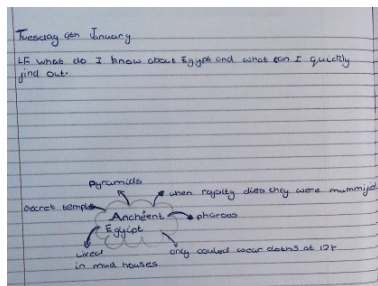 Tuesday 9th January
LF What do I know about Egypt and what can I quickly
find out.
Pyramids
when royalty dies they were mummified
secret temple
Ancheent
Egyipt
pharoes
Lived
in mud houses
only could wear cloths at 12+